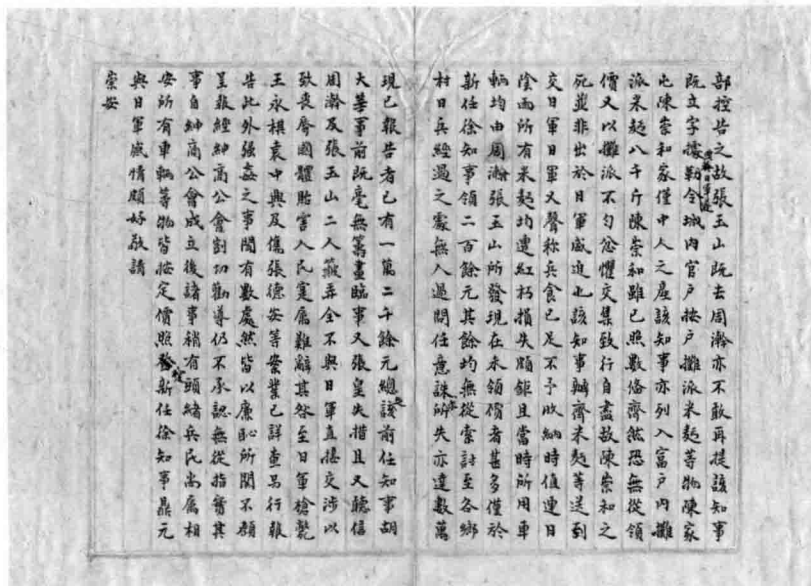 部控告之故張玉山既去周瀚亦不敢再提該知事
既立字據勒令城內官戶按戶攤派米麪等物陳家
屯陳崇和家僅中人之產該知事亦列入富戶內攤
派米麪八千斤陳崇和雖已照數條齊然恐無從領
價又以攤派不勻忿懼交集致行自盡故陳崇和之
死並非出於日軍威迫也該知事辦齊米麪等送到
交日軍日軍又聲称兵食已足不予收納時值連日
陰雨所有米麪均遭紅朽損失頗鉅且當時所用車
輛均由周瀚張玉山所發現在未領價者甚多僅於
新任徐知事領二百餘元其餘均無從索討至各鄉
村日兵經過之處無人過問任意誅求所失亦達數萬
現已報告者已有一萬二千餘元總之該前任知事胡
大華事前既毫無籌畫臨事又張皇失措且又聽信
周瀚及張玉山二人簸弄全不與日軍直接交涉以
致喪辱國體貽害人民寔屬難辭其咎至日軍槍斃
王永祺袁中興及傷張德安等案業已詳查另行報
告此外强姦之事聞有數處然皆以廉恥所關不願
呈報經紳商公會剴切勸導仍不承認無從指實其
事自紳商公會成立後諸事稍有頭緒兵民尚屬相
安所有車輛等物皆按定價照發新任徐知事鼎元
與日軍感情頗好敬請
崇安